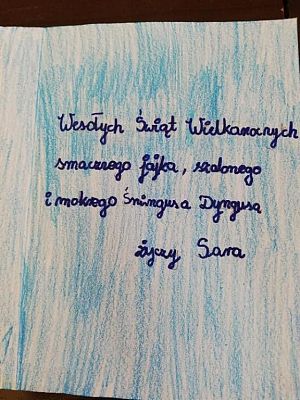 Wesołych Świąt Wielkanocnych
smacznego jajka, szalonego
i mokrego Śmingusa Dyngusa
życzy Sara